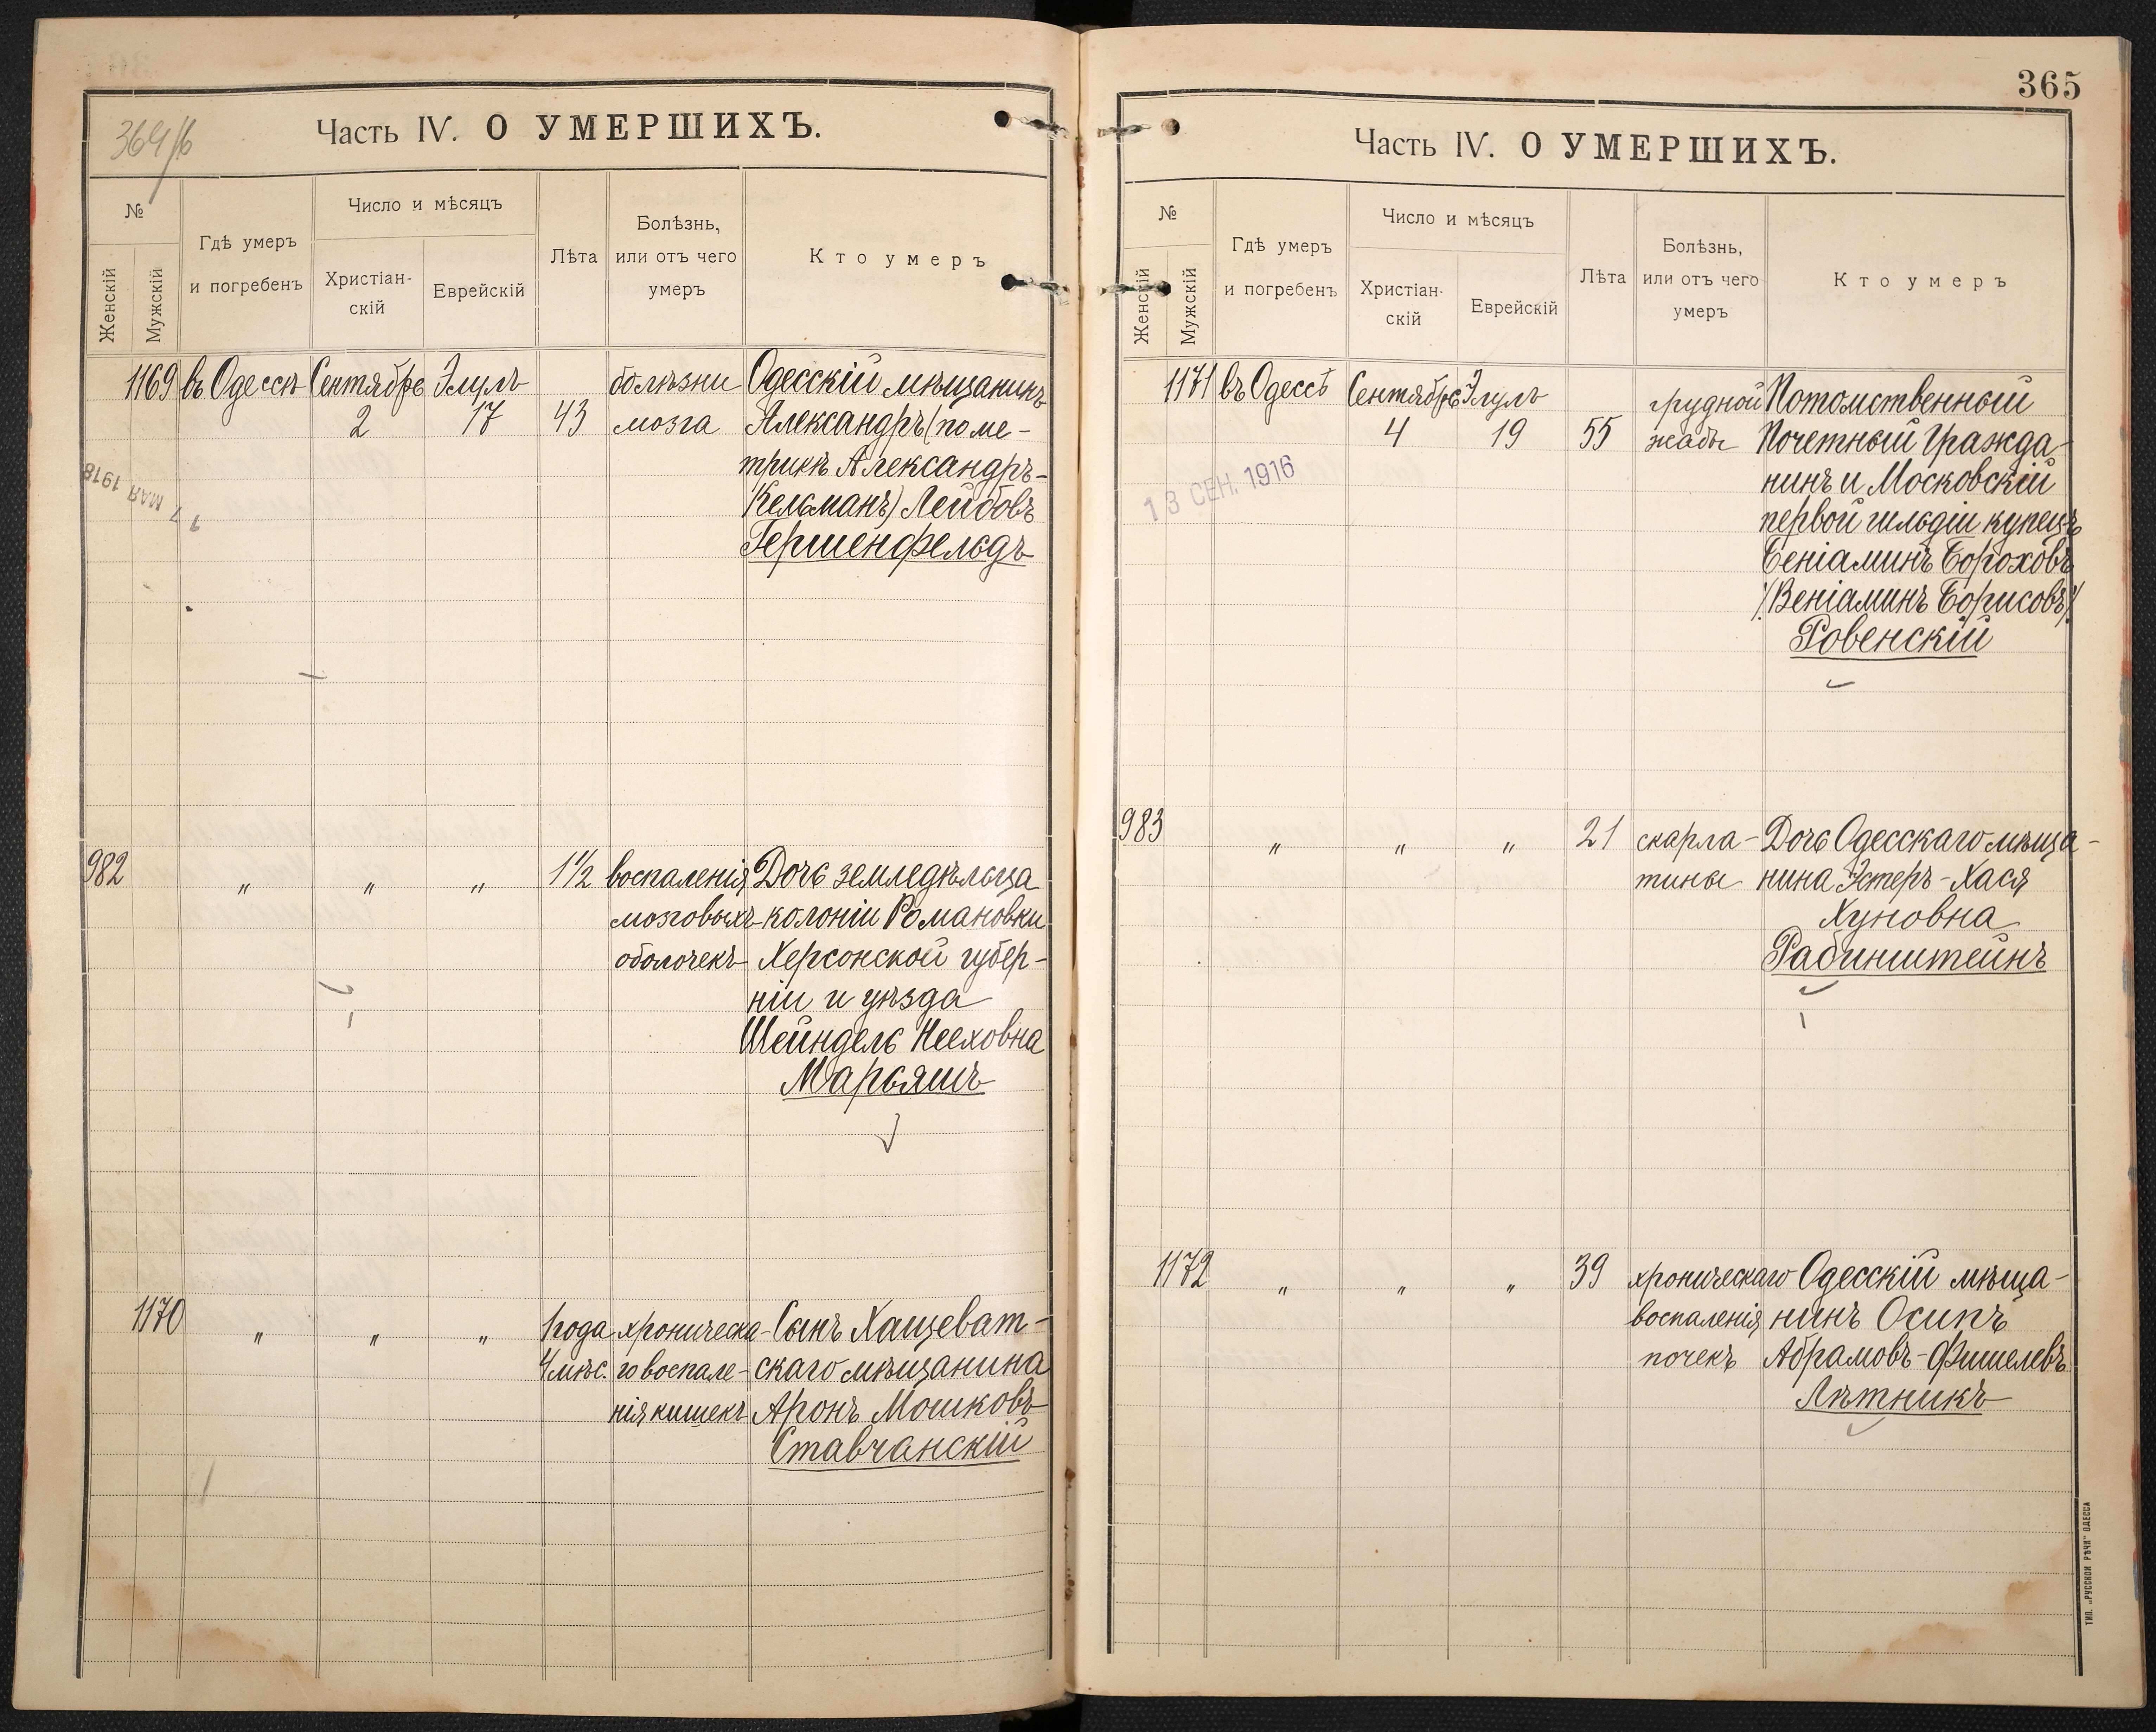 364/б
Часть IV. О УМЕРШИХЪ.
№
Женскій
Мужскій
Гдѣ умеръ
и погребенъ
Число и мѣсяцъ
Христіан-
скій
Еврейскій
Лѣта
Болѣзнь,
или отъ чего
умеръ
Кто умеръ
1169 въ Одессѣ Сентябрь Элулъ болѣзни Одесскій мѣщанинъ
2 17 43 мозга Александръ (по ме-
трикѣ Александръ-
Кельманъ) Лейбовъ
Гершенфельдъ
17 МАЯ 1918
982 " " " 1½ воспаленія Дочь земледѣльца
мозговыхъ колоніи Романовки
оболочекъ Херсонской губер-
ніи и уѣзда
Шейндель Нееховна
Марьяшъ
1170 " " " 1 года хроническа- Сынъ Хащеват-
4 мѣс. го воспале- скаго мѣщанина
нія кишекъ Аронъ Мошковъ
Ставчанскій
365
Часть IV. О УМЕРШИХЪ.
№
Женскій
Мужскій
Гдѣ умеръ
и погребенъ
Число и мѣсяцъ
Христіан-
скій
Еврейскій
Лѣта
Болѣзнь,
или отъ чего
умеръ
Кто умеръ
1171 въ Одессѣ Сентябрь Элулъ грудной Потомственный
4 19 55 жабы Почетный Гражда-
нинъ и Московскій
первой гильдіи купецъ
Беніаминъ Бороховъ
/Веніаминъ Борисовъ/
Ровенскій
13 СЕН. 1916
983 " " " 21 скарла- Дочь Одесскаго мѣща-
тины нина Эстеръ-Хася
Хуновна
Рабинштейнъ
1172 " " " 39 хроническаго Одесскій мѣща-
воспаленія нинъ Осипъ
почекъ Абрамовъ-Фишелевъ
Лѣтникъ
ТИП. „РУССКОЙ РѢЧИ" ОДЕССА